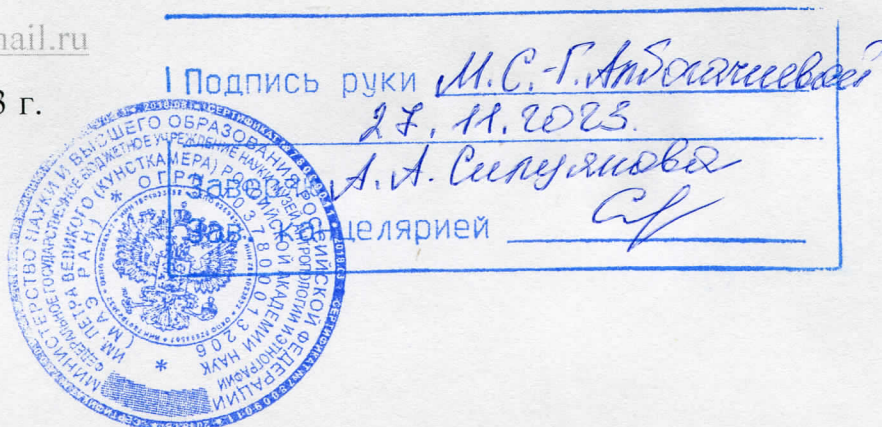 ail.ru
3 г.
Подпись руки М.С.-Г. Албогачиевой
27.11.2023.
заверяю А.А. Силуянова
Зав. канцелярией
МИНИСТЕРСТВО НАУКИ И ВЫСШЕГО ОБРАЗОВАНИЯ РОССИЙСКОЙ ФЕДЕРАЦИИ
ФЕДЕРАЛЬНОЕ ГОСУДАРСТВЕННОЕ БЮДЖЕТНОЕ УЧРЕЖДЕНИЕ НАУКИ МУЗЕЙ АНТРОПОЛОГИИ И ЭТНОГРАФИИ
ИМ. ПЕТРА ВЕЛИКОГО (КУНСТКАМЕРА) РОССИЙСКОЙ АКАДЕМИИ НАУК
(МАЭ РАН) * ОГРН 1037800013206 *